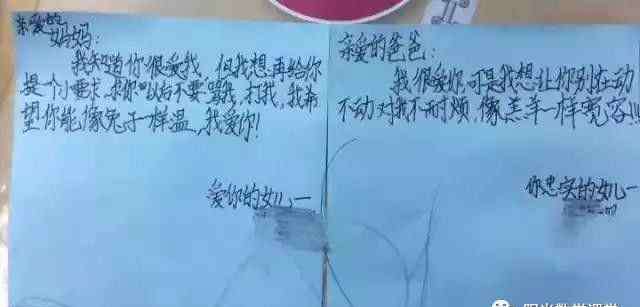 亲爱的
妈妈：
我知道你很爱我，但我想再给你
提一个小要求，求你"以后不要"骂我，打我，我希
望你能像兔子一样温，我爱你！
爱你的女儿一
亲爱的爸爸：
我很爱你，可是我想让你别在动
不动对我不耐烦，像羔羊一样宽容！！
你忠实的女儿一
阳光数学课堂